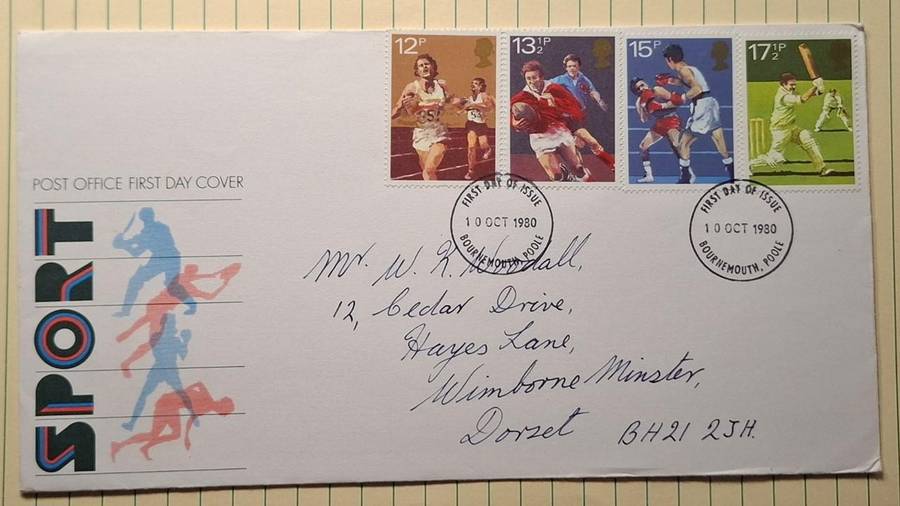 12P
13½P
15P
17½P
POST OFFICE FIRST DAY COVER
SPORT
FIRST DAY OF ISSUE
10 OCT 1980
BOURNEMOUTH, POOLE
FIRST DAY OF ISSUE
10 OCT 1980
BOURNEMOUTH, POOLE
Mr. W. R. Woodall,
12, Cedar Drive,
Hayes Lane,
Wimborne Minster,
Dorset BH21 2JH.